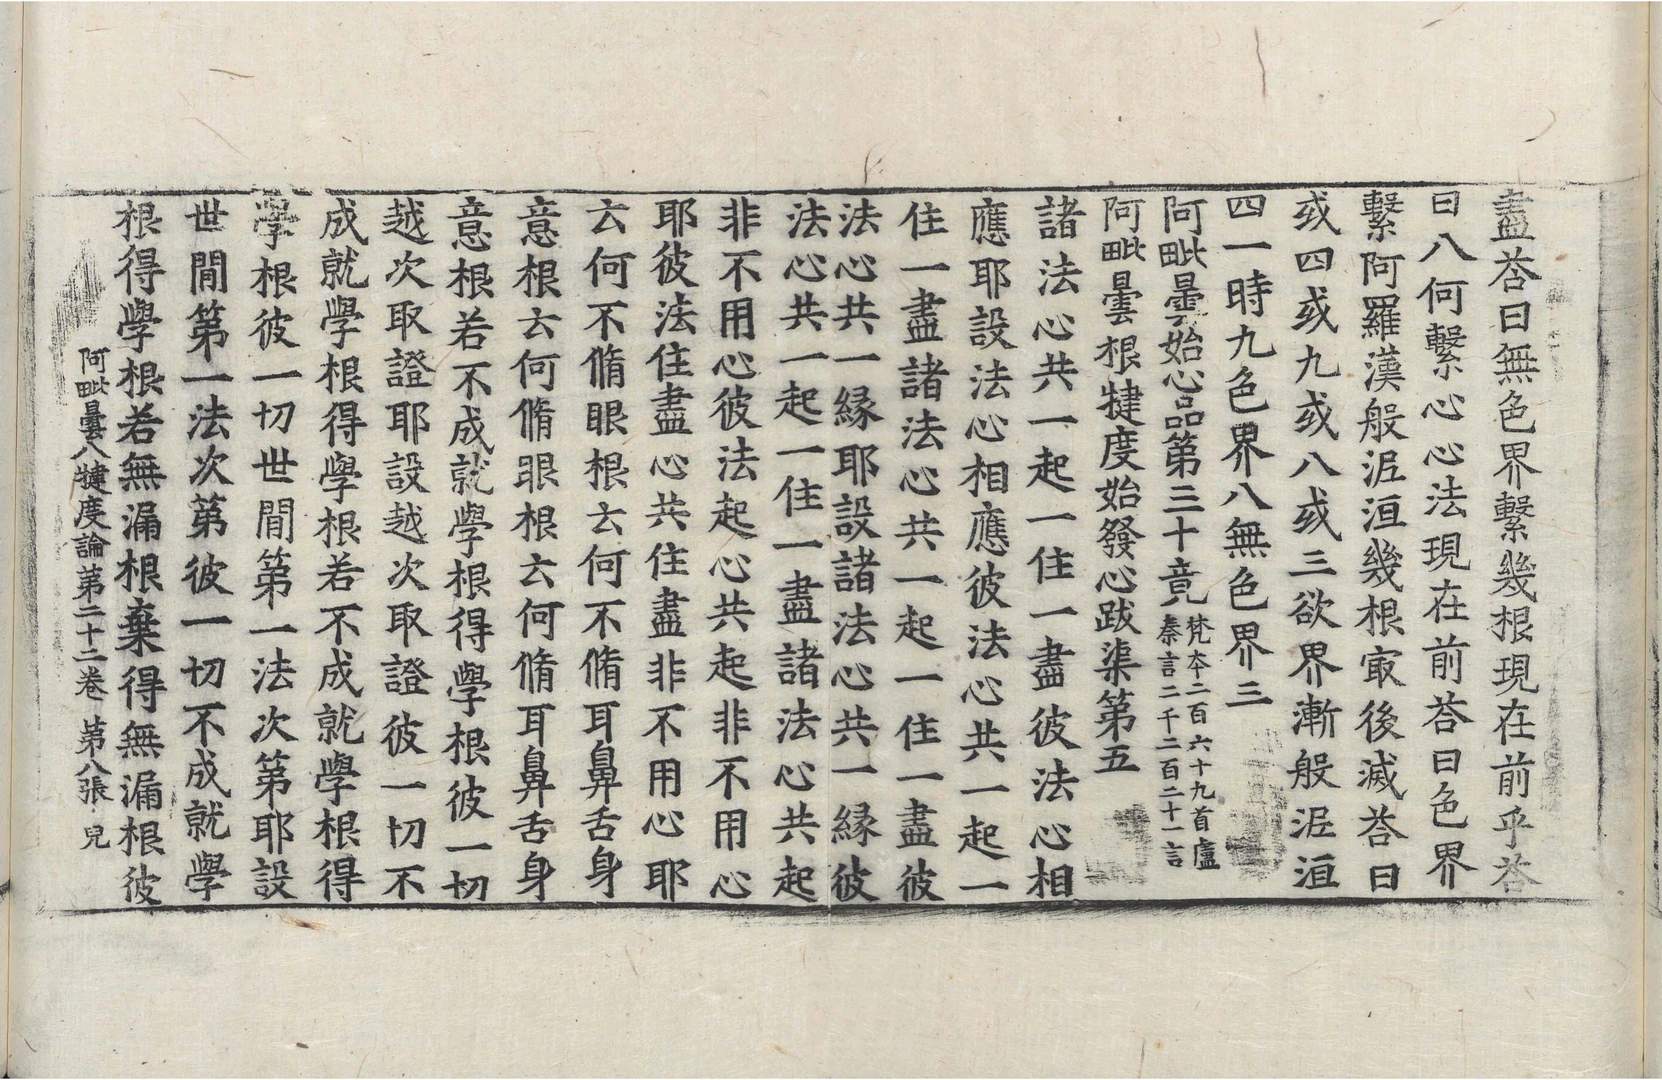 盡荅曰無色界繫幾根現在前乎荅
曰八何繫心心法現在前荅曰色界
繫阿羅漢般泥洹幾根㝡後滅荅曰
或四或九或八或三欲界漸般泥洹
四一時九色界八無色界三
阿毗曇始心品第三十竟梵本二百六十九首盧秦言二千二百二十一言
阿毗曇根犍度始發心跋渠第五
諸法心共一起一住一盡彼法心相
應耶設法心相應彼法心共一起一
住一盡諸法心共一起一住一盡彼
法心共一緣耶設諸法心共一緣彼
法心共一起一住一盡諸法心共起
非不用心彼法起心共起非不用心
耶彼法住盡心共住盡非不用心耶
云何不脩眼根云何不脩耳鼻舌身
意根云何脩眼根云何脩耳鼻舌身
意根若不成就學根得學根彼一切
越次取證耶設越次取證彼一切不
成就學根得學根若不成就學根得
學根彼一切世閒第一法次第耶設
世閒第一法次第彼一切不成就學
根得學根若無漏根棄得無漏根彼
阿毗曇八犍度論第二十二卷 第八張 皃